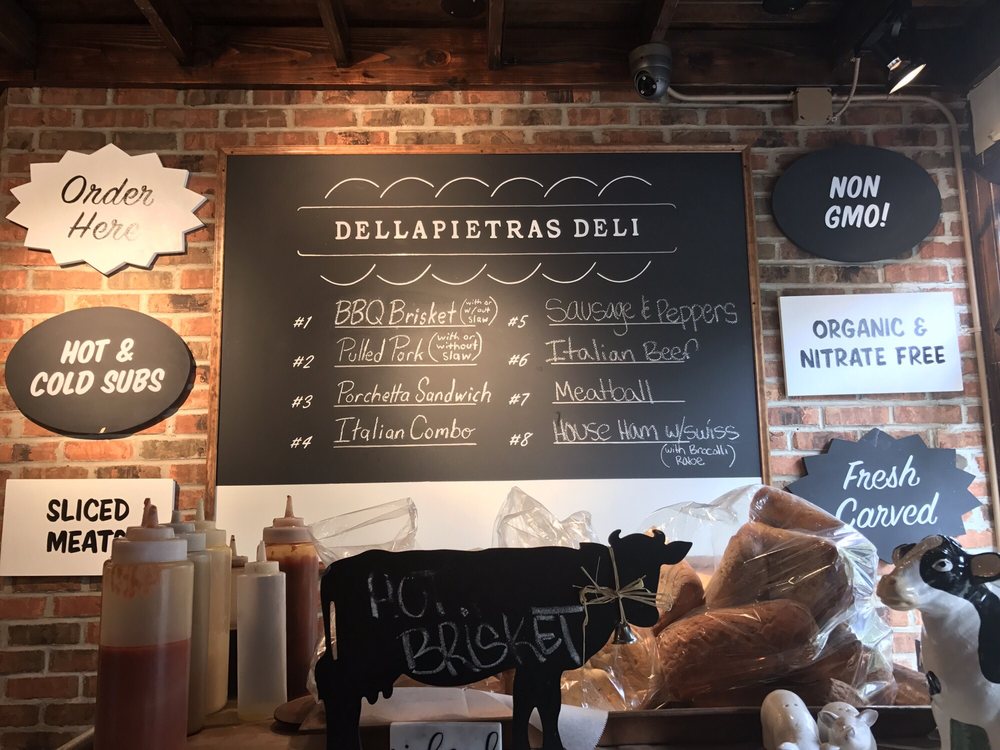 Order
Here
HOT &
COLD SUBS
SLICED
MEATS
DELLAPIETRAS DELI
#1 BBQ Brisket (with or w/out slaw)
#2 Pulled Pork (with or without slaw)
#3 Porchetta Sandwich
#4 Italian Combo
#5 Sausage & Peppers
#6 Italian Beef
#7 Meatball
#8 House Ham w/swiss
(with Brocolli
Rabe)
NON
GMO!
ORGANIC &
NITRATE FREE
Fresh
Carved
BRISKET